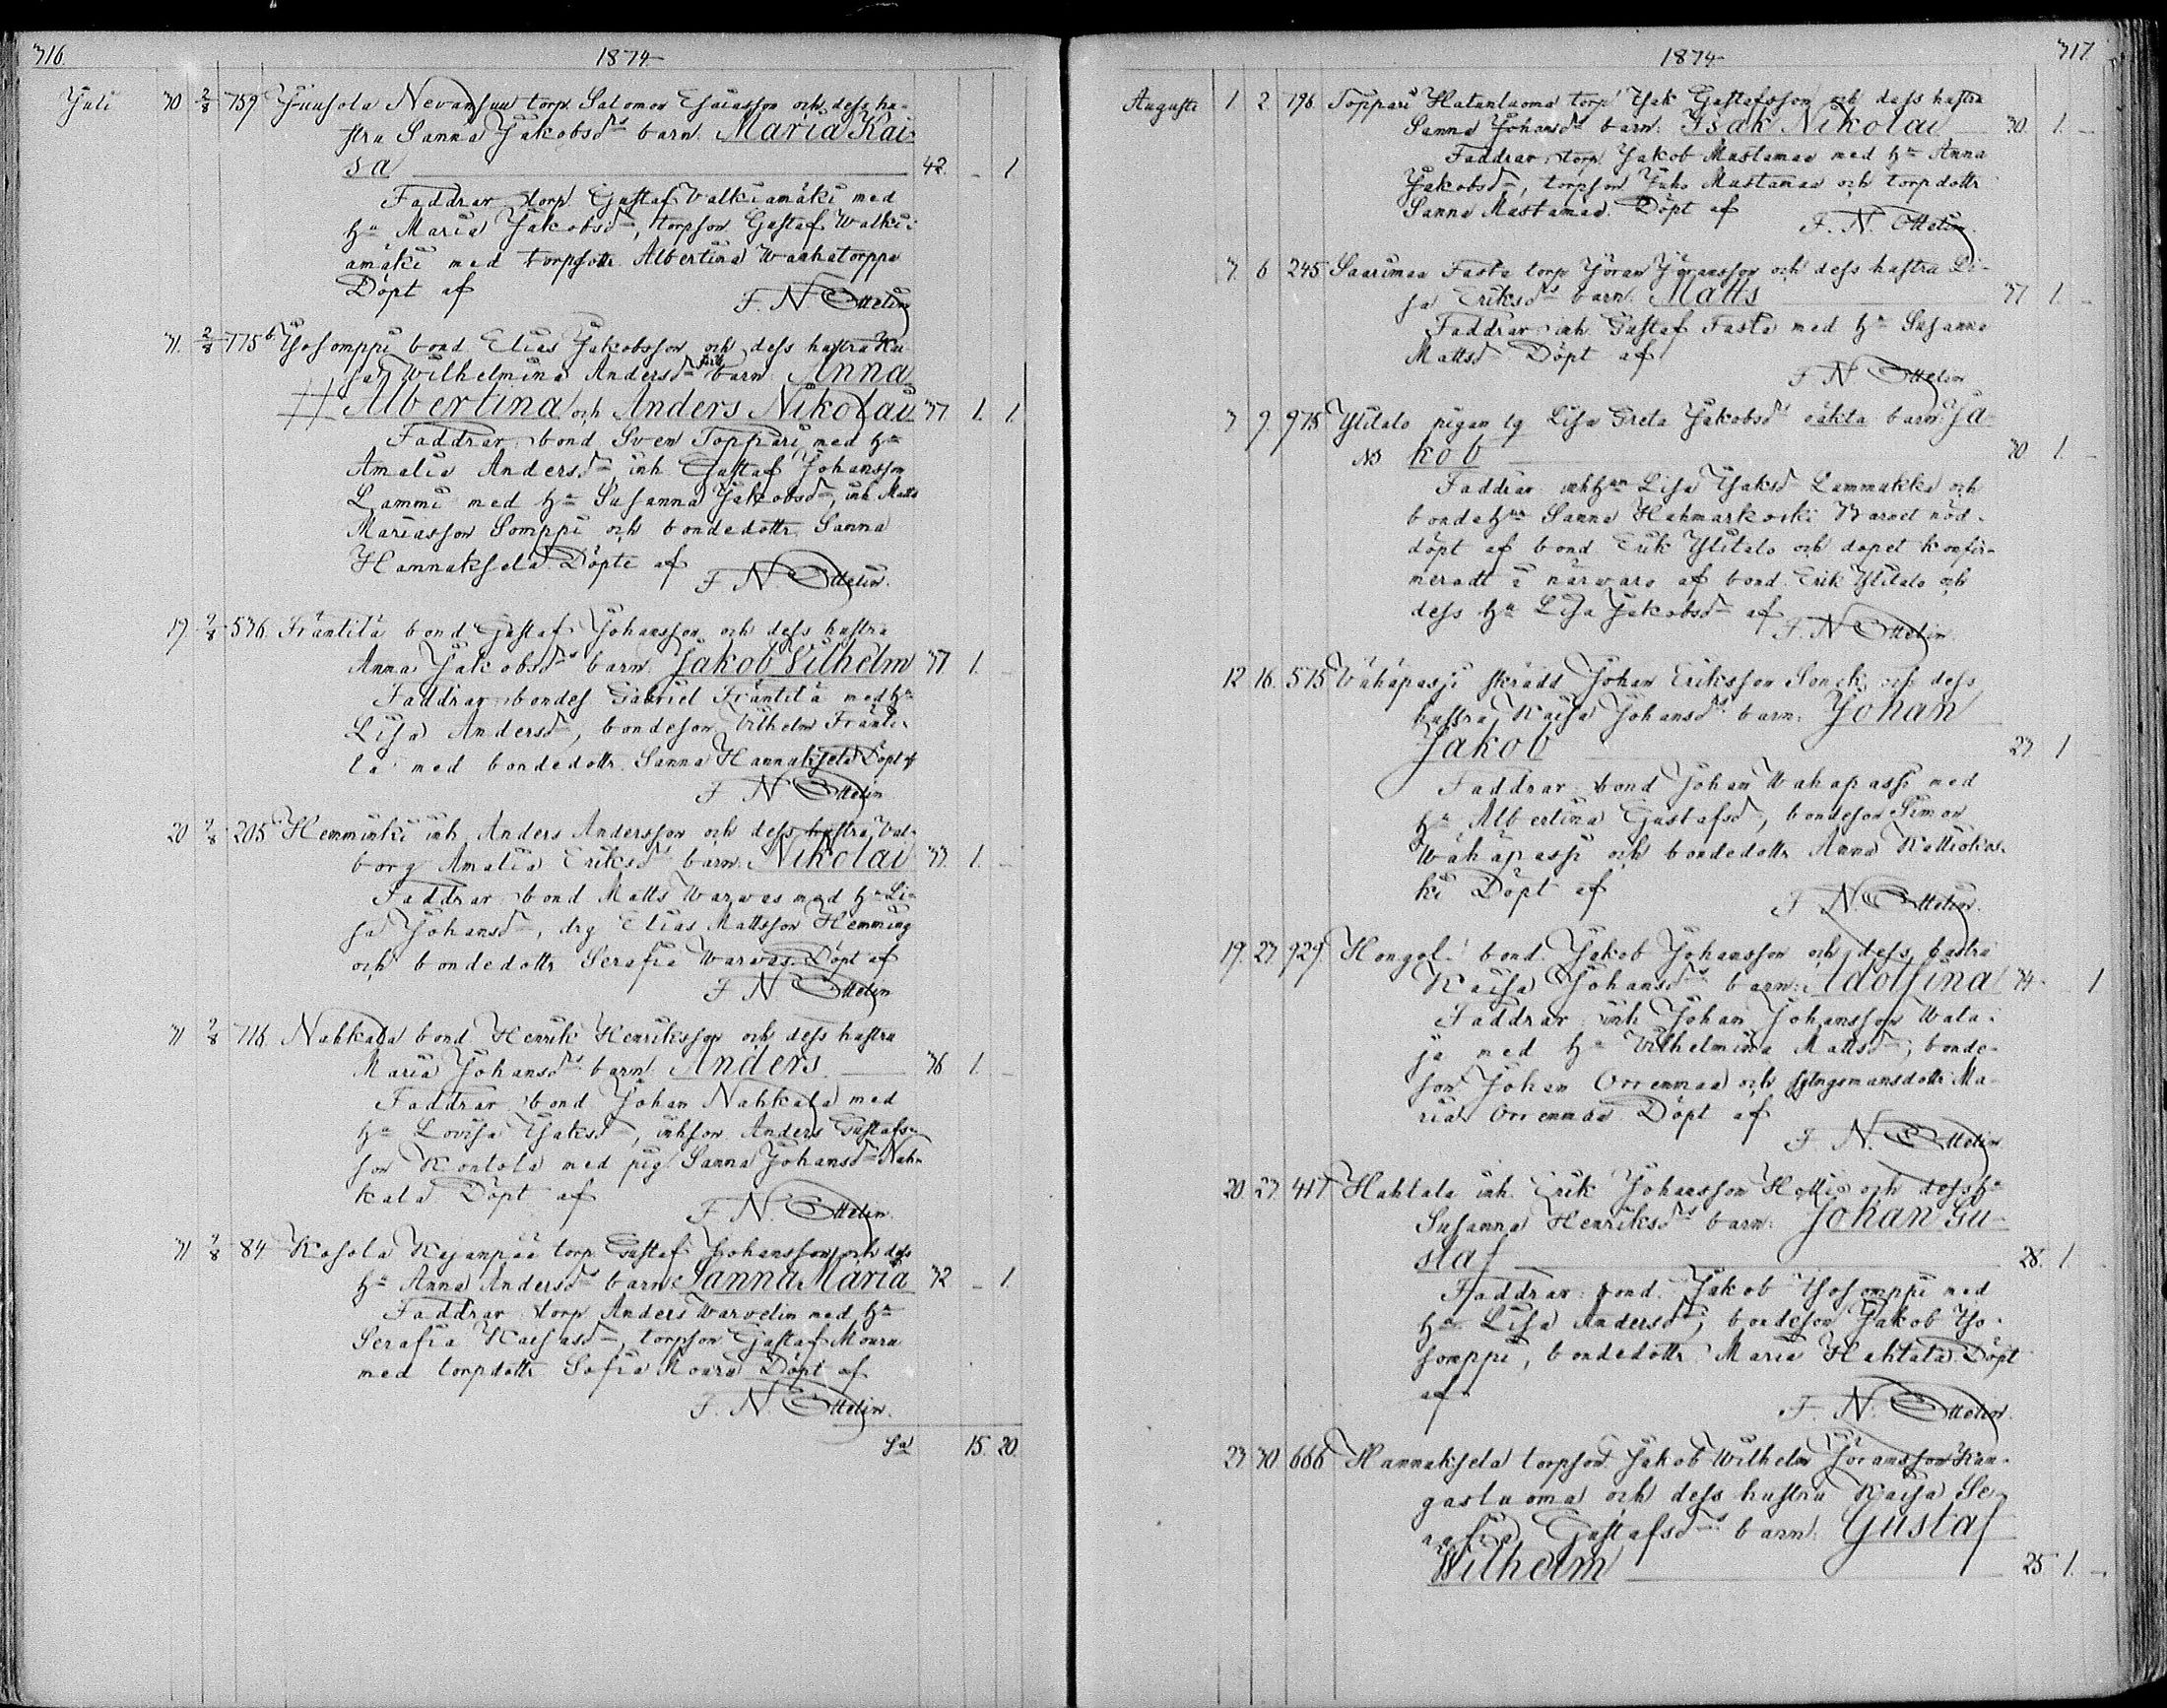 316.
1874.
Juli 30 2/8 759 Juusola Nevansuu torp. Salomon Esaiasson och dess hu-
stru Sanna Jakobsdrs barn. Maria Kai-
sa 42. - 1
Faddrar torp. Gustaf Walkiamäki med
hu Maria Jakobsdr, torpson Gustaf Walki-
amäki med torpdottr. Albertina Waahatorppa
Döpt af F. N. Ottelin
31. 2/8 775b Ylisomppi bond Elias Jakobsson och dess hustru Kai-
sa Wilhelmina Andersdrs barn Anna
Albertina och Anders Nikolai 37. 1. 1.
Faddrar: bond Sven Toppari med hu
Amalia Andersdr inh Gustaf Johansson
Lammi med hu Susanna Jakobsdr, inh Matts
Mariasson Somppi och bondedottr. Sanna
Hannuksela. Döpte af F. N. Ottelin.
19. 9/8 536. Fräntilä bond Gustaf Johansson och dess hustru
Anna Jakobsdrs barn Jakob Vilhelm 37 1. -
Faddrar: bondes Gabriel Fräntilä med hu
Lisa Andersdr, bondeson Vilhelm Fränti-
lä med bondedottr. Sanna Hannuksela Döpt af
F N Ottelin
20 9/8 205 Hemminki inh. Anders Andersson och dess hustru Val-
borg Amalia Eriksdrs barn. Nikolai 33. 1. -
Faddrar: bond Matts Warvas med hu Li-
sa Johansdr, drg Elias Mattsson Hemming
och bondedottr. Serafia Warvas. Döpt af
F N Ottelin
31 9/8 716. Nahkala bond Henrik Henriksson och dess hustru
Maria Johansdrs barn. Anders 36 1. -
Faddrar bond Johan Nahkala med
hu Lovisa Isaksdr, inhson Anders Gustafs-
son Kontola med pig. Sanna Johansdr Nah-
kala. Döpt af F. N. Ottelin.
31 9/8 84 Kosola Kajanpää torp Gustaf Johansson och dess
hu Anna Andersdrs barn: Sanna Maria 32 - 1.
Faddrar torp. Anders Warvelin med hu
Serafia Kaisasdr, torpson Gustaf Moura
med torpdottr Sofia Koura Döpt af
F. N. Ottelin.
Sa 15. 20.
1874
317.
Augusti 1. 2. 196. Toppari Hatanluoma torp Isak Gustafsson och dess hustru
Sanna Johansdrs barn: Isak Nikolai 30. 1. -
Faddrar: torp. Jakob Mustamaa med hu Anna
Jakobsdr, torpson Juho Mustamaa och torpdottr
Sanna Mustamaa. Döpt af F. N. Ottelin.
3. 6 245 Saarimaa Fasta torp Jöran Jöransson och dess hustru Li-
sa Eriksdrs barn. Matts 37 1. -
Faddrar: inh. Gustaf Fasta med hu Susanna
Mattsdr Döpt af
F. N Ottelin
3 9. 975 Ylitalo pigan lg Lisa Greta Jakobsdrs oäkta barn: Ja-
NB kob 30 1. -
Faddrar: inhhun Lisa Isaksdr Lammukka och
bondehun Sanna Hahmarkoski Barnet nöd-
döpt af bond. Erik Ylitalo och dopet konfir-
meradt i närwaro af bond. Erik Ylitalo och
dess hu Lisa Jakobsdr af F. N Ottelin.
12 16. 575 Vähäpassi skrädd Johan Eriksson Sonck och dess
hustru Kaisa Johansdrs barn: Johan
Jakob 27. 1 -
Faddrar: bond Johan Wähäpassi med
hu Albertina Gustafsdr, bondeson Simon
Wähäpassi och bondedottr Anna Kattiokos-
ki Döpt af F. N. Ottelin.
19. 23. 929. Hongol. bond. Jakob Johansson och dess hustru
Kaisa Johansdrs barn: Adolfina 34. - 1
Faddrar inh Johan Johansson Wata-
ja med hu Vilhelmina Mattsdr; bonde-
son Johan Orrenmaa och sytngsmansdottr Ma-
ria Orrenmaa Döpt af
F. N. Ottelin
20. 23. 417 Hahtala inh Erik Johansson Hotti och dess hu
Susanna Henriksdrs barn: Johan Gu-
staf 28. 1 -
Faddrar: bond. Jakob Ylisomppi med
hu Lisa Andersdr; bondeson Jakob Yli-
somppi, bondedottr. Maria Hahtala Döpt
af
F. N. Ottelin.
23 30 666 Hannuksela torpson Jakob Wilhelm Jöransson Kan-
gasluoma och dess hustru Kaisa Se-
rafia Gustafsdrs barn. Gustaf
Wilhelm 25. 1. -